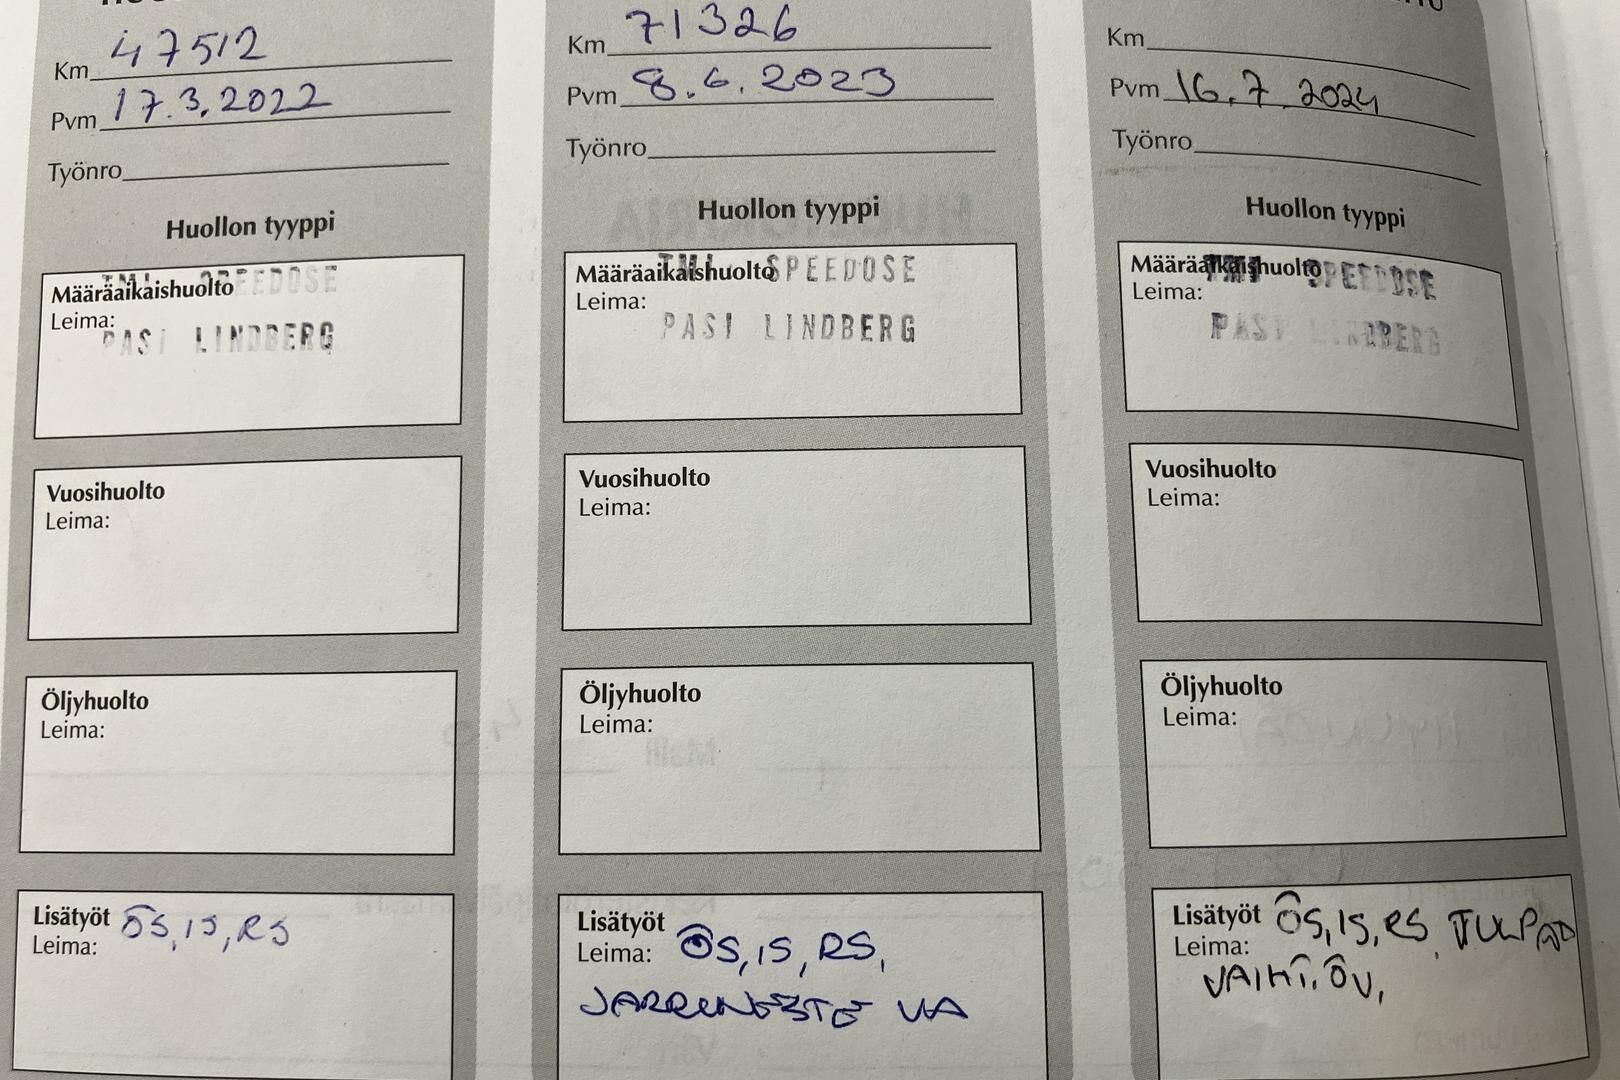 Km 47512
Pvm 17.3.2022
Työnro
Huollon tyyppi
Määräaikaishuolto
TMI SPEEDOSE
Leima:
PASI LINDBERG
Vuosihuolto
Leima:
Öljyhuolto
Leima:
Lisätyöt ÖS, IS, RS
Leima:
Km 71326
Pvm 8.6.2023
Työnro
Huollon tyyppi
Määräaikaishuolto
TMI SPEEDOSE
Leima:
PASI LINDBERG
Vuosihuolto
Leima:
Öljyhuolto
Leima:
Lisätyöt
Leima: ÖS, IS, RS,
JARRUNESTE VA
Km
Pvm 16.7.2024
Työnro
Huollon tyyppi
Määräaikaishuolto
TMI SPEEDOSE
Leima:
PASI LINDBERG
Vuosihuolto
Leima:
Öljyhuolto
Leima:
Lisätyöt ÖS, IS, RS, TULPAD
Leima:
VAIHT. ÖV,